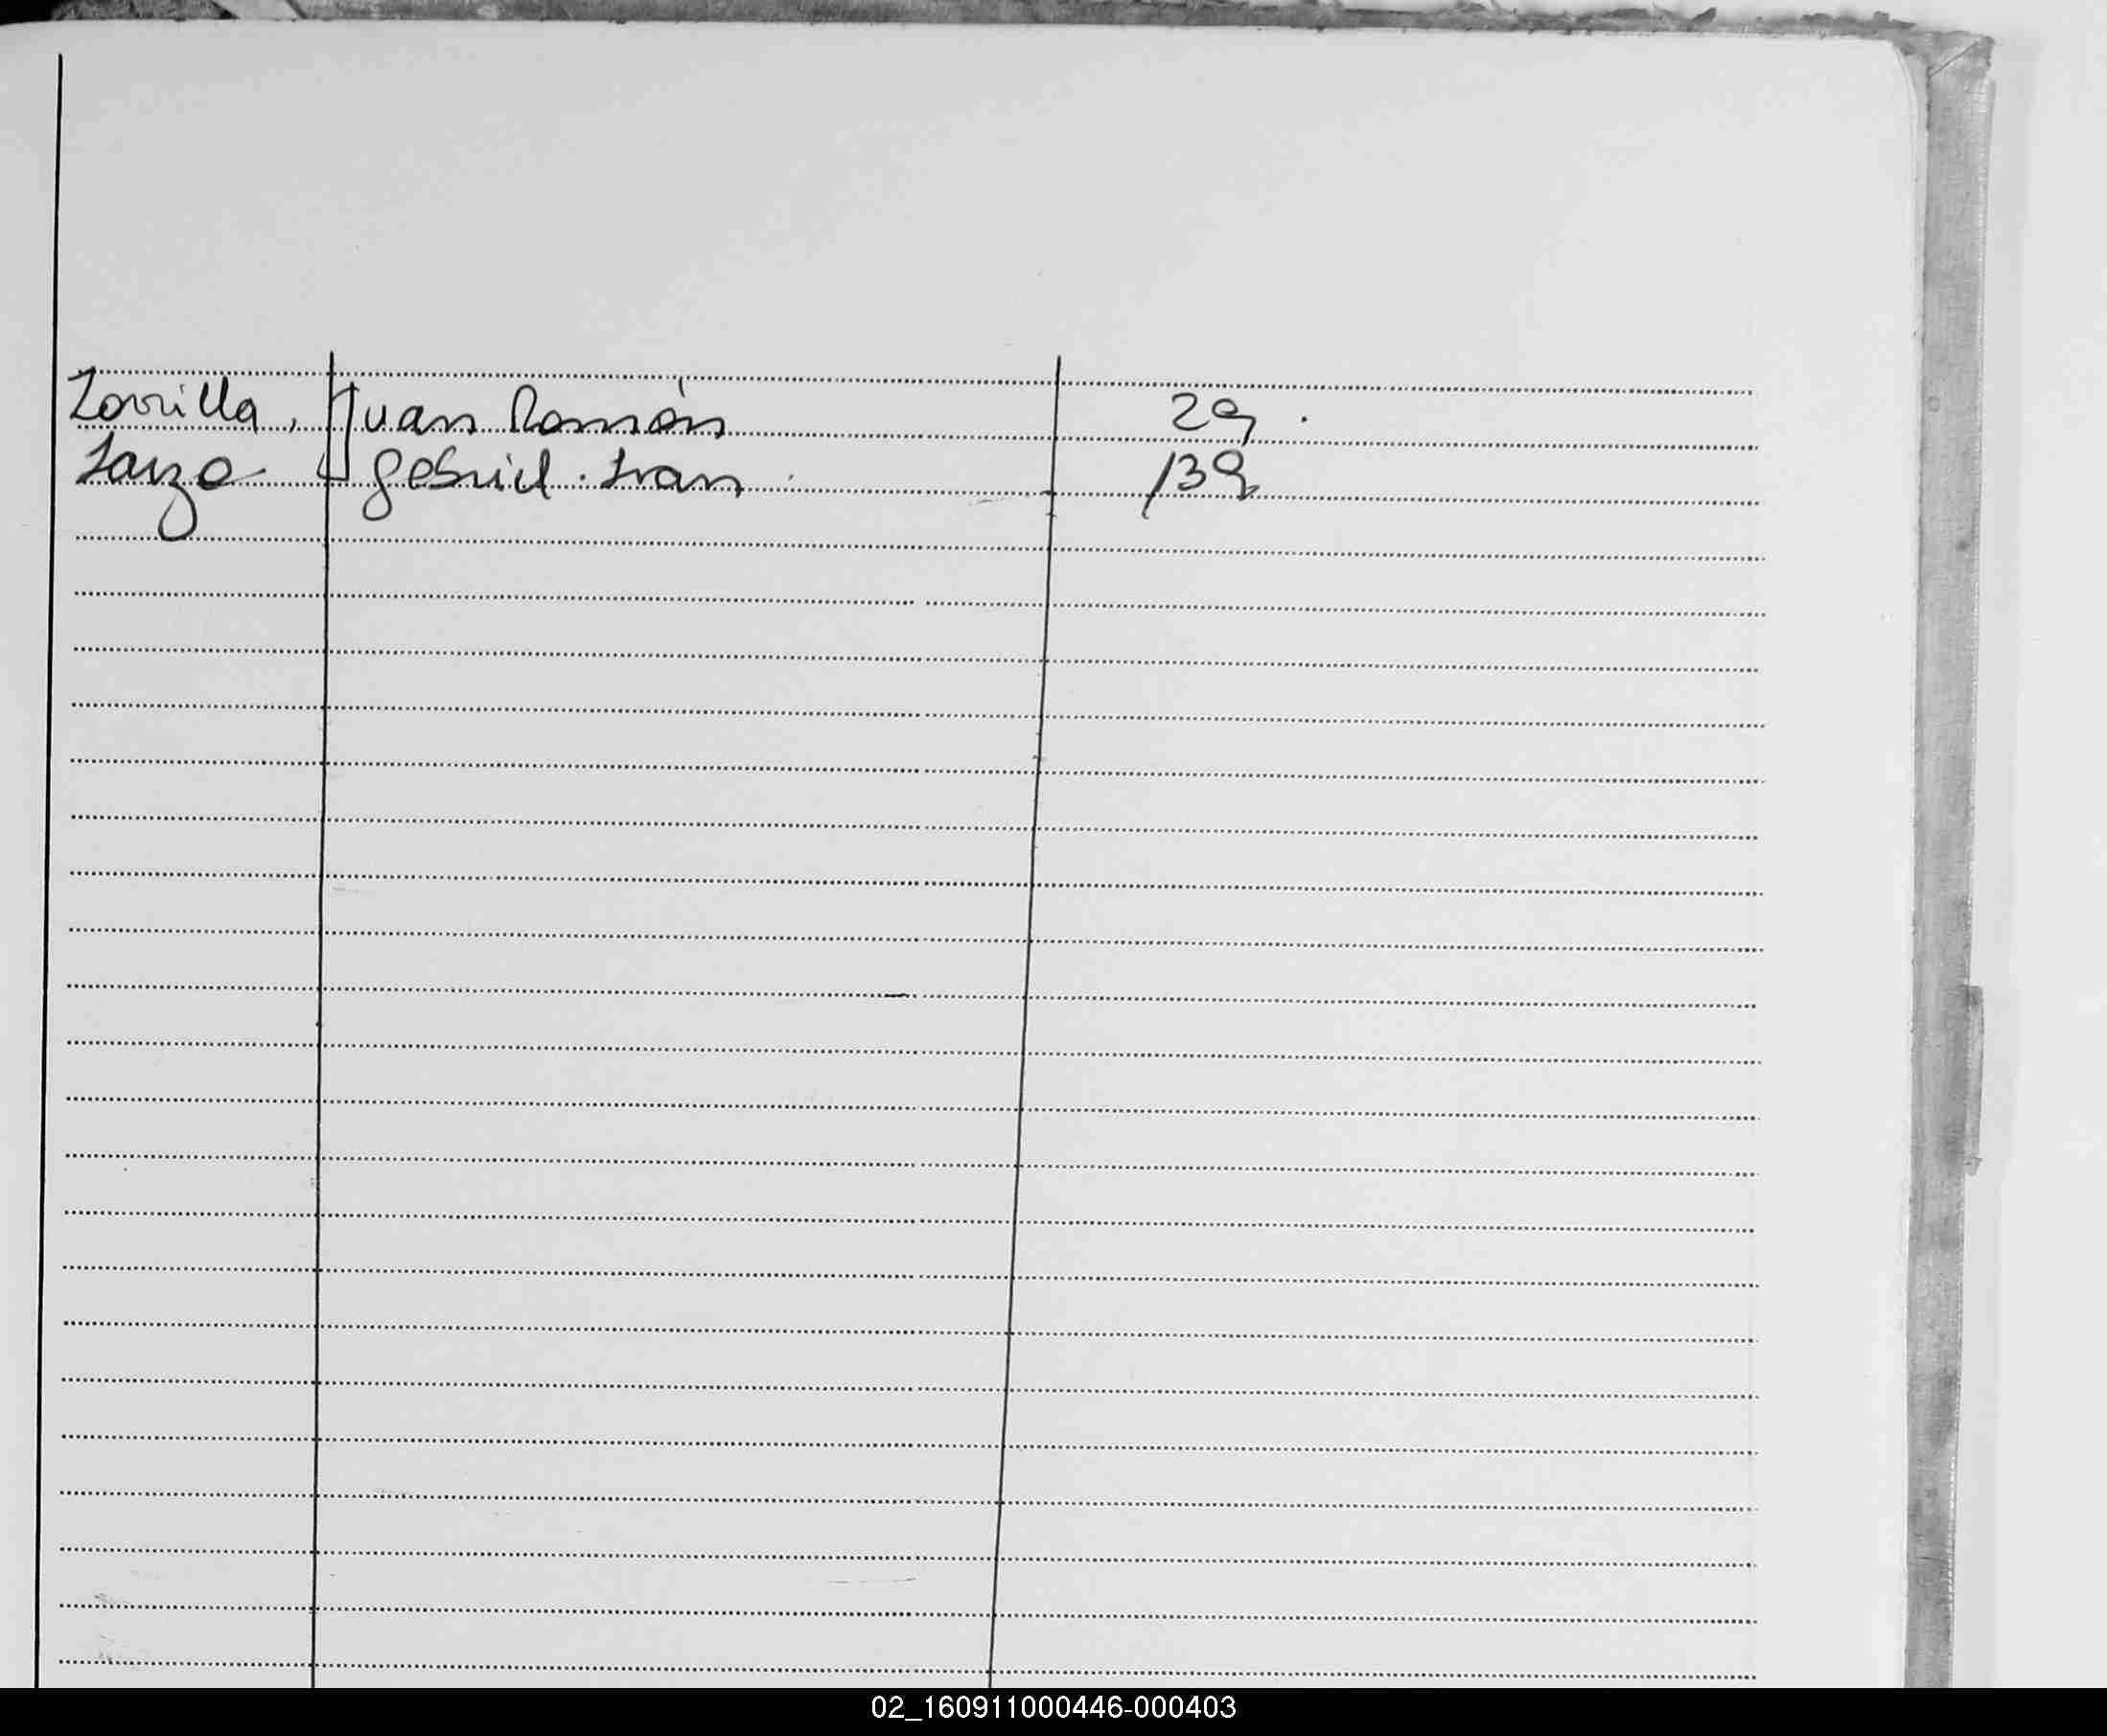 Zorrilla, Juan Román 29.
Gabriel Ivan 139
02_160911000446-000403